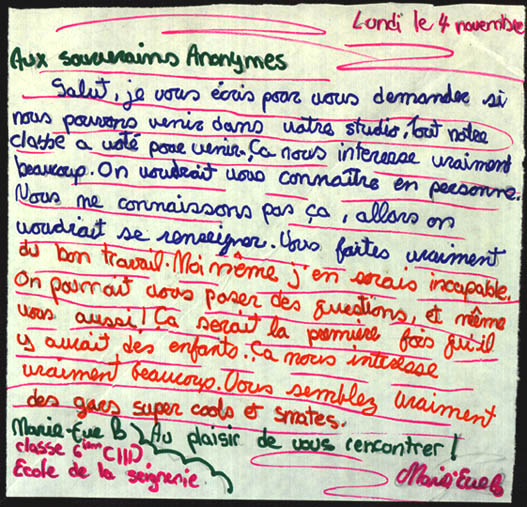 Lundi le 4 novembre
Aux souverains Anonymes
Salut, je vous écris pour vous demander si
nous pouvons venir dans votre studio, tout notre
classe a voté pour venir. Ça nous interesse vraiment
beaucoup. On voudrait vous connaître en personne.
Nous ne connaissons pas ça, allors on
voudrait se renseigner. Vous faites vraiment
du bon travail. Moi même j'en serais incapable.
On pourrait vous poser des questions, et même
vous aussi! Ça serait la première fois qu'il
y aurait des enfants. Ça nous interesse
vraiment beaucoup. Vous semblez vraiment
des gars super cools et smates.
Marie-Eve B Au plaisir de vous rencontrer!
classe 6ième C111
École de la seignerie
Marie-Eve B